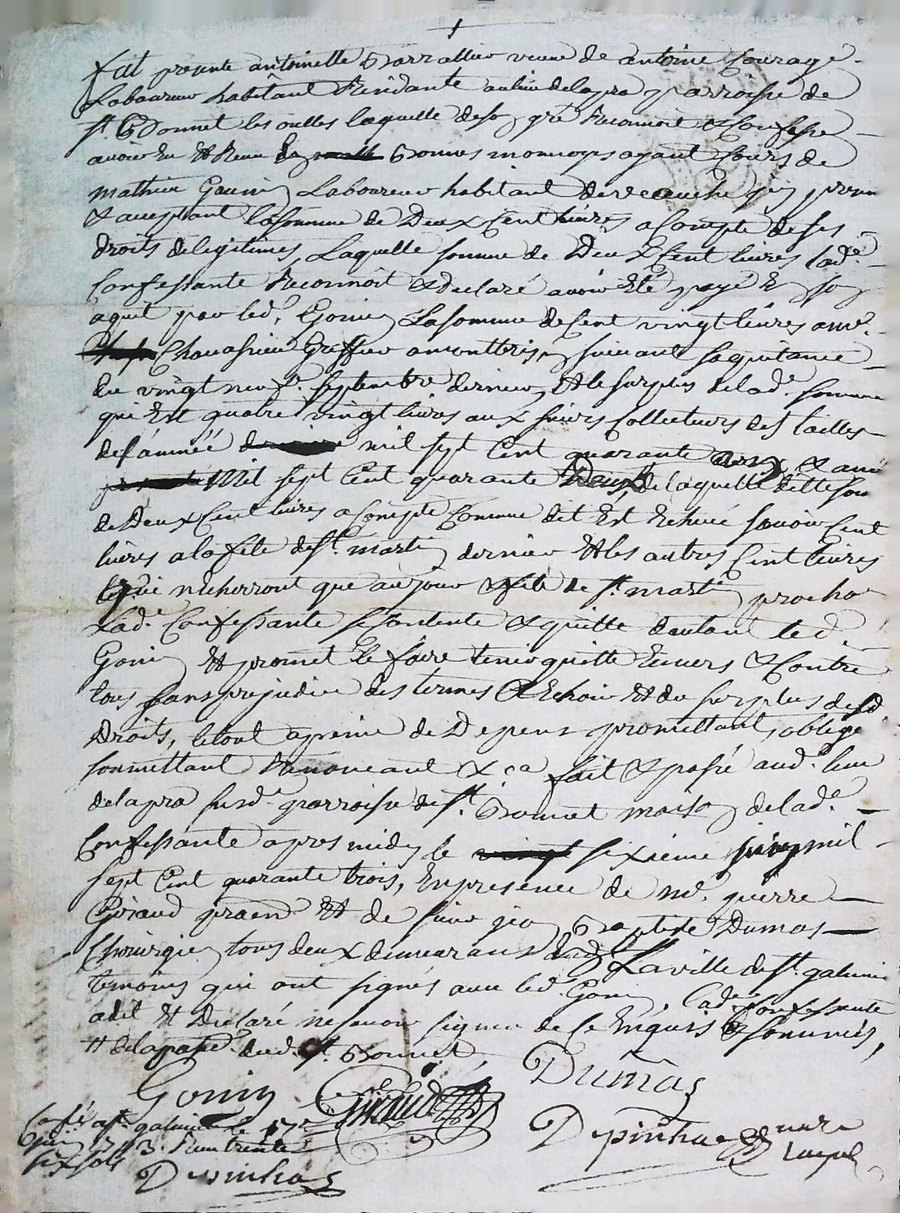 fut presente antoinette Barrallier veuve de antoine
Laboureur habitant Residante au lieu delapra parroisse de
st. Bonnet les oulles laquelle deson gré Reconnoit & Confesse
avoir Eu & Receu Bonnes monnoyes ayant Cours de
mathieu Gonin Laboureur habitant de veauche
& acceptant la somme de Deux Cent livres a Compte de ses
droits delegitimes, Laquelle somme de Deux Cent livres lade.
Confessante Reconnoit & declaré avoir Eté payé En son
aquit par led. Gonin La somme de Cent vingt livres a me.
Greffier suivant sa quitance
du vingt neuf septembre dernier & le surplus delade. somme
qui Est quatre vingt livres aux sieurs Collecteurs des tailles
de l'année mil sept Cent quarante
mil sept Cent quarante Deux de laquelle
de Deux Cent livres a Compte Comme dit Est Echeue savoir Cent
livres a la fete de st. martin dernier & les autres Cent livres
qui n'echerront que au jour & fete de st. martin prochain
Lad. Confessante se Contente & quitte dautant led.
Gonin & promet le faire tenir quitte Envers & Contre
tous sans prejudice des termes a Echoir & du surplus desd.
Droits, le tout a peine de Depens promettant, obligé
soumettant Renonceant & ca fait & passé aud. lieu
delapra susd. parroisse de st. Bonnet maison delade.
Confessante apres midy le sixieme juin mil
sept Cent quarante trois, En presence de me. pierre
Giraud & de sieur jean Baptiste Dumas
Chirurgien tous deux demeurans La ville de st. galmier
temoins qui ont signés avec led. Gonin, Lade. Confessante
a dit & Declaré ne savoir signer de Ce Enquis & sommés,
dud. st. Bonnet,
Gonin Giraud Dumas
st. galmier le
1743. Recu trente
six sols
Depinhac
Depinhac